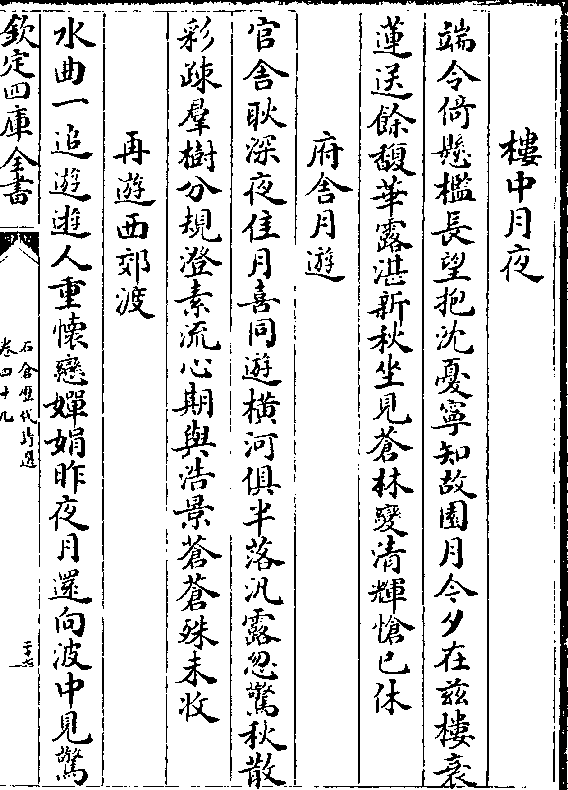 樓中月夜
端令倚懸檻長望抱沈憂寧知故園月今夕在兹樓衰
蓮送餘馥華露湛新秋坐見蒼林變清輝愴已休
府舍月遊
官舍耿深夜佳月喜同遊橫河俱半落汎露忽驚秋散
彩疎羣樹分規澄素流心期與浩景蒼蒼殊未收
再遊西郊渡
水曲一追遊遊人重懷戀嬋娟昨夜月還向波中見驚
欽定四庫全書
石倉歷代詩選
卷四十九
二十七